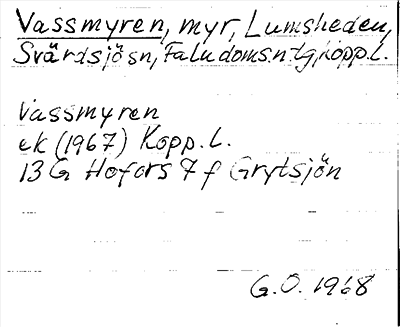 Vassmyren, myr, Lumsheden,
Svärdsjö sn, Falu domsn tg, Kopp. l.
Vassmyren
ek (1967) Kopp. L.
13 G Hofors 7 f Grytsjön
G.O. 1968